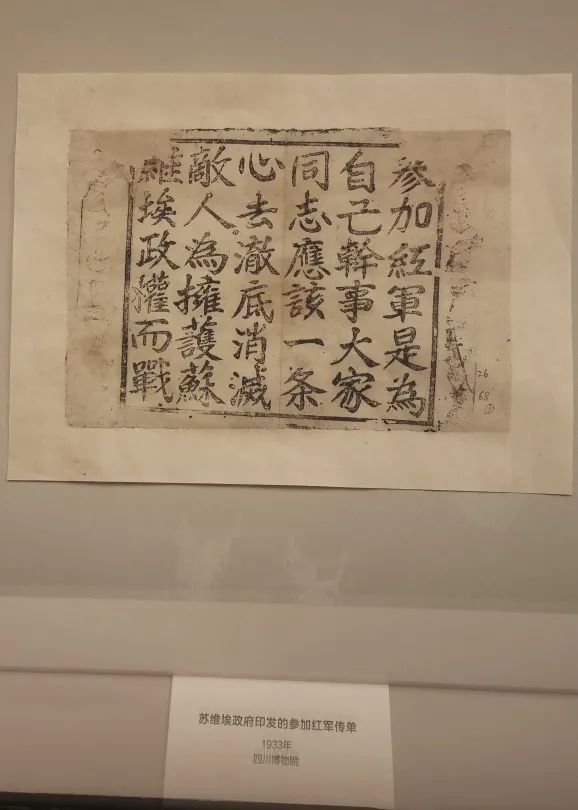 参加紅軍是為
自己幹事大家
同志應該一条
心去澈底消滅
敵人為擁護蘇
維埃政權而戰
26
68
①
苏维埃政府印发的参加红军传单
1933年
四川博物院